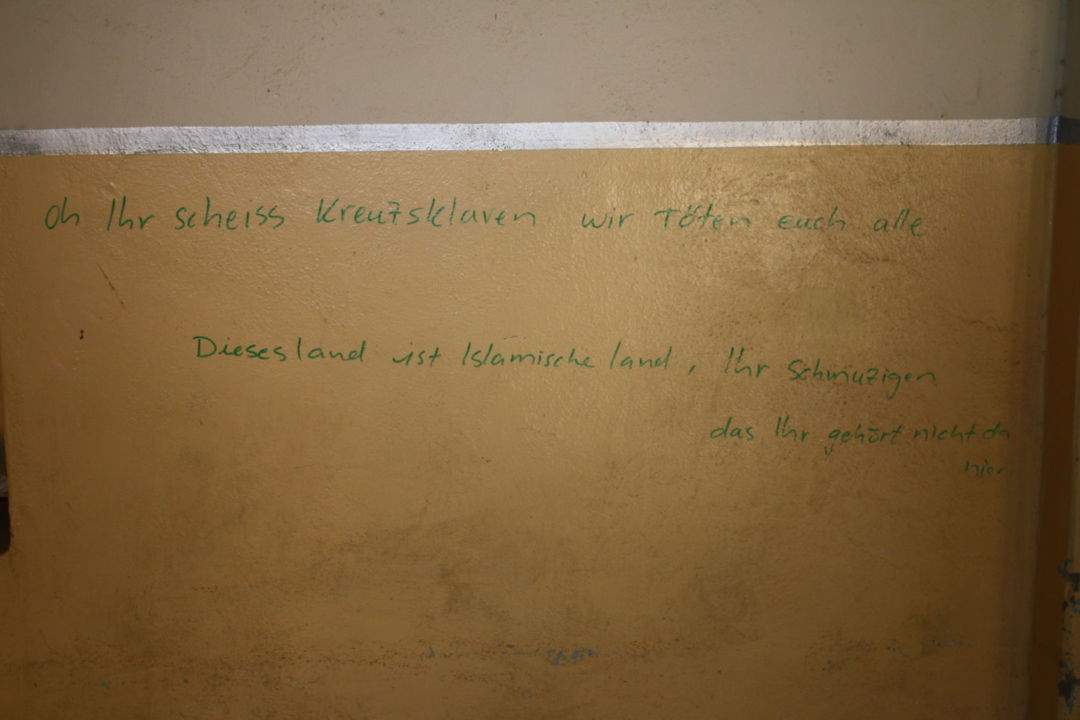 oh Ihr scheiss Kreuzsklaven wir Töten euch alle
Dieses land ist Islamische land, Ihr Schmuzigen
das Ihr gehört nicht da
hier